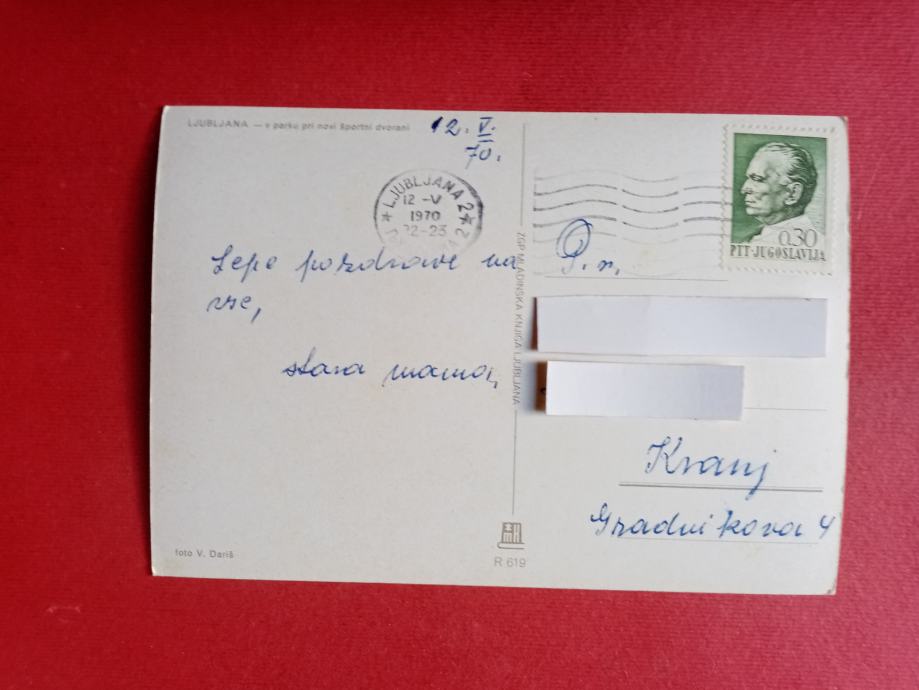 LJUBLJANA — v parku pri novi športni dvorani
12. V.
70.
LJUBLJANA 2
12 -V
1970
22-23
Lepe pozdrave na
vse,
stara mama,
foto V. Dariš
ZGP MLADINSKA KNJIGA LJUBLJANA
MK
R 619
0.30
PTT-JUGOSLAVIJA
D. n.
Kranj
Gradnikova 4